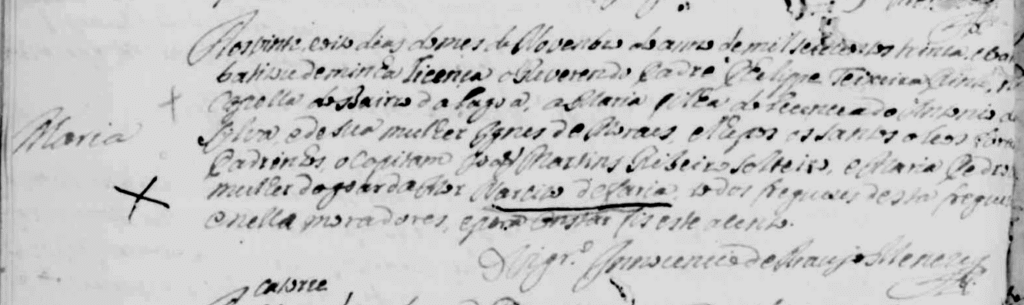 Aos vinte e oito dias do mes de Novembro do anno de mil setecentos trinta e
batizou de minha licença o Reverendo Padre Phelippe Teixeira Pinto, na
Capella do Bairro da Lagoa, a Maria filha do Licenciado Antonio da
Maria
Sylva, e de sua mulher Ignes de Moraes, e lhe pos os santos oleos foram
Padrinhos, o Capitam Joseph Martins Ribeiro solteiro, e Maria Pedro
mulher do goarda Mor Narcizo de Faria, todos freguezes desta fregue
e nella moradores, e para constar fis este acento.
O Vigr.º Innocencio de Araujo Menezes
catorze